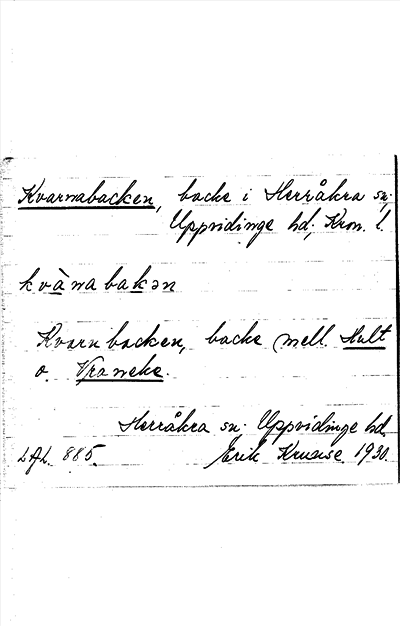 Kvarnabacken, backe i Herråkra sn.
Uppvidinge hd, Kron. l.
kvànabakən
Kvarnbacken, backe mell. Hult
o. Vraneke.
Herråkra sn. Uppvidinge hd.
LAL. 885. Erik Kruuse 1930.